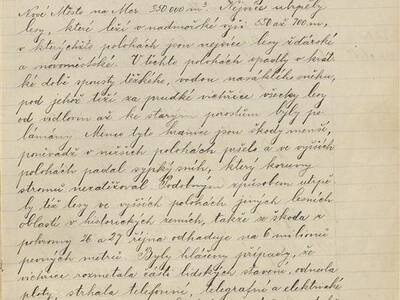 Nové Město na Mor. 350000 m³. Nejvíce utrpěly
lesy, které leží v nadmořské výši 550 až 700 m,
v kterýchžto polohách jsou nejvíce lesy žďárské
a novoměstské. V těchto polohách spadly v krát-
ké době spousty těžkého, vodou nasáklého sněhu,
pod jehož tíží za prudké vichřice všecky lesy
od vidlom až ke starým porostům byly po-
lámány. Mimo tyto hranice jsou škody menší,
poněvadž v nižších polohách pršelo a ve vyšších
polohách padal sypký sníh, který koruny
stromů nezatěžoval. Podobným způsobem utrpě-
ly též lesy ve vyšších polohách jiných lesních
oblastí v historických zemích, takže se škoda z
pohromy 26 a 27 října odhaduje na 6 milionů
pevných metrů. Byly hlášeny případy, že
vichřice rozmetala části lidských stavení, odnesla
ploty, strhala telefonní, telegrafní a elektrické